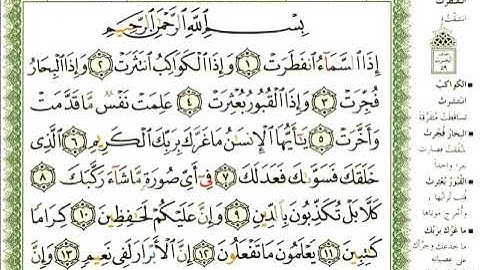 بِسْمِ ٱللَّهِ ٱلرَّحْمَٰنِ ٱلرَّحِيمِ
إِذَا ٱلسَّمَآءُ ٱنفَطَرَتْ ١ وَإِذَا ٱلْكَوَاكِبُ ٱنتَثَرَتْ ٢ وَإِذَا ٱلْبِحَارُ
فُجِّرَتْ ٣ وَإِذَا ٱلْقُبُورُ بُعْثِرَتْ ٤ عَلِمَتْ نَفْسٌ مَّا قَدَّمَتْ
وَأَخَّرَتْ ٥ يَٰٓأَيُّهَا ٱلْإِنسَٰنُ مَا غَرَّكَ بِرَبِّكَ ٱلْكَرِيمِ ٦ ٱلَّذِى
خَلَقَكَ فَسَوَّىٰكَ فَعَدَلَكَ ٧ فِىٓ أَىِّ صُورَةٍ مَّا شَآءَ رَكَّبَكَ ٨
كَلَّا بَلْ تُكَذِّبُونَ بِٱلدِّينِ ٩ وَإِنَّ عَلَيْكُمْ لَحَٰفِظِينَ ١٠ كِرَامًا
كَٰتِبِينَ ١١ يَعْلَمُونَ مَا تَفْعَلُونَ ١٢ إِنَّ ٱلْأَبْرَارَ لَفِى نَعِيمٍ ١٣ وَإِنَّ
انفطرت
انشقت
الكواكب
انتثرت
تساقطت متفرقة
البحار فجرت
شققت فصارت
بحرا واحدا
القبور بعثرت
ما غرك بربك
ما خدعك وجرأك
على عصيانه